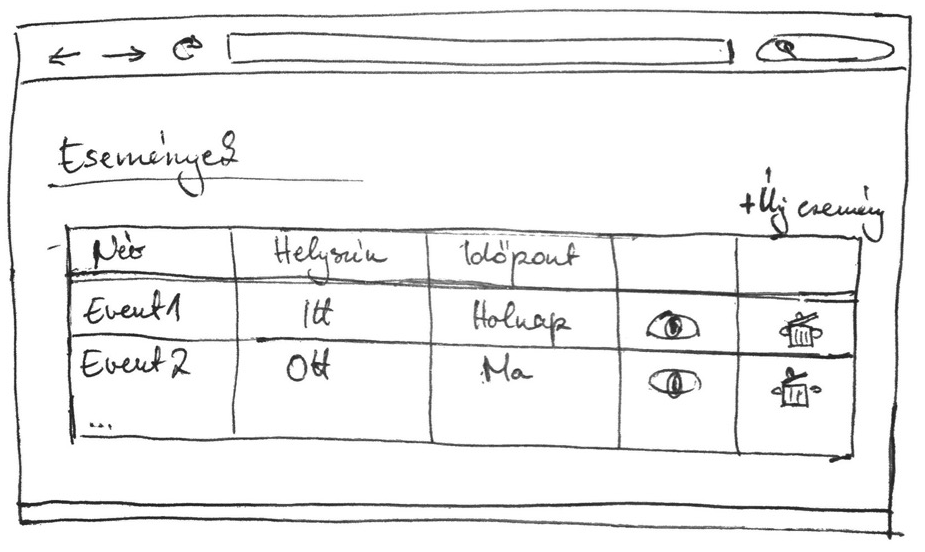 Események
+Új esemény
Név Helyszín Időpont
Event1 Itt Holnap
Event2 Ott Ma
...